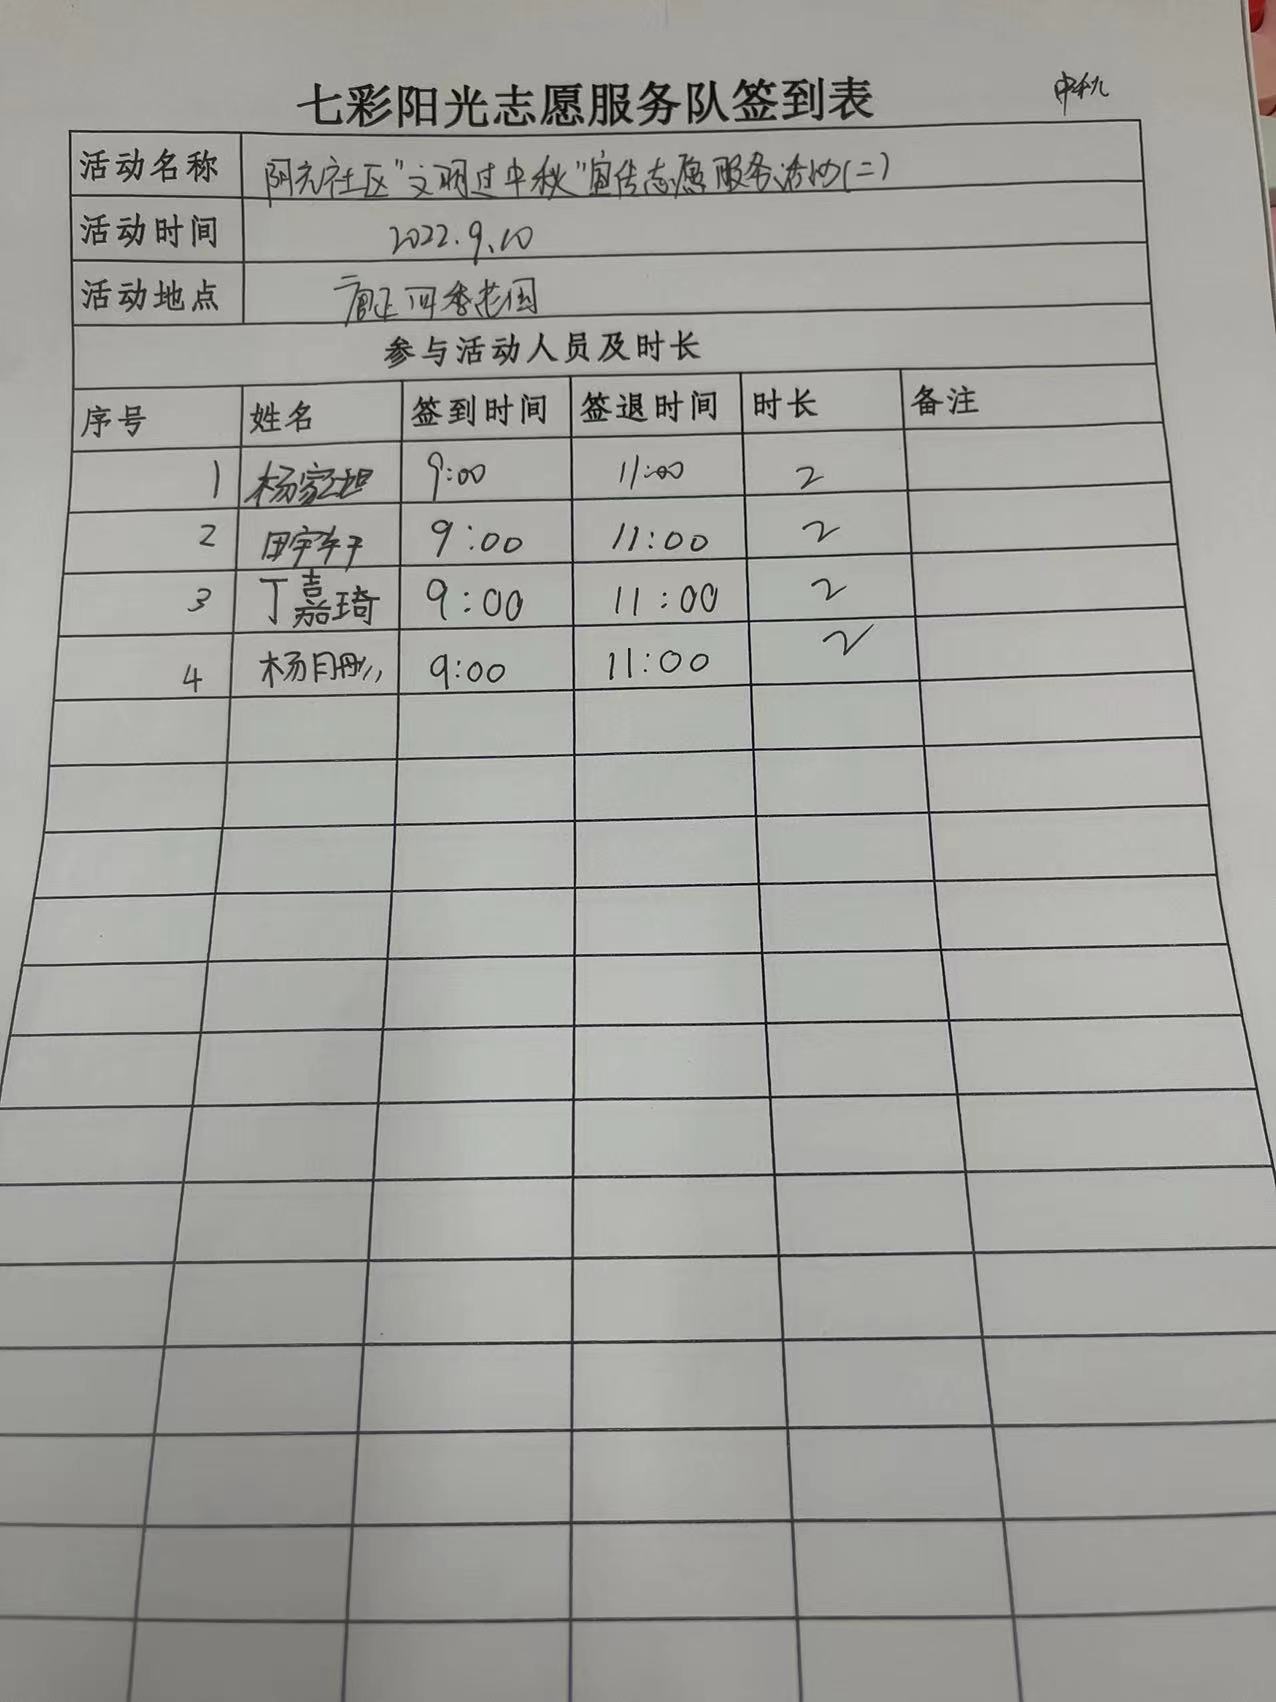 七彩阳光志愿服务队签到表
活动名称 阳光社区"文明过中秋"宣传志愿服务活动(二)
活动时间 2022.9.10
活动地点
参与活动人员及时长
序号 姓名 签到时间 签退时间 时长 备注
1 杨家 9:00 11:00 2
2 田宇 9:00 11:00 2
3 丁嘉琦 9:00 11:00 2
4 杨 9:00 11:00 2